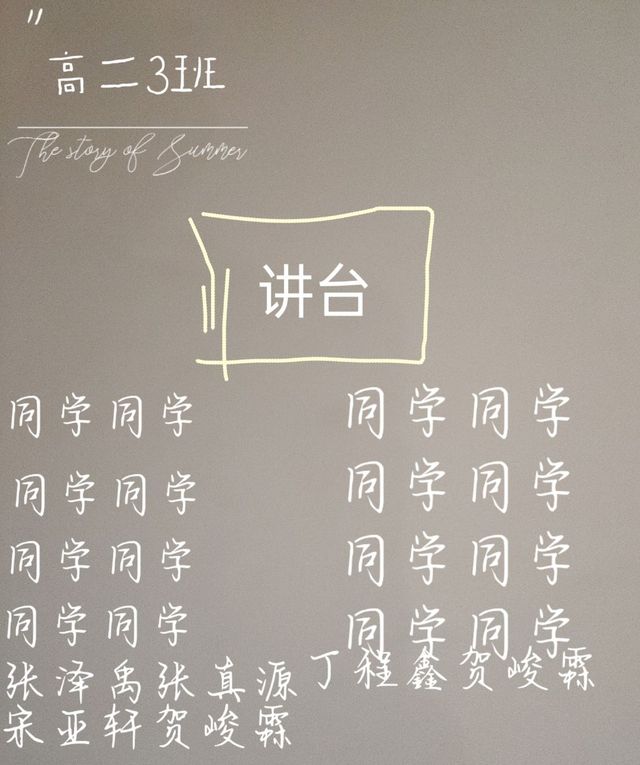 "
高二3班
The story of Summer
讲台
同学同学 同学同学
同学同学 同学同学
同学同学 同学同学
同学同学 同学同学
张泽禹张真源 丁程鑫贺峻霖
宋亚轩贺峻霖